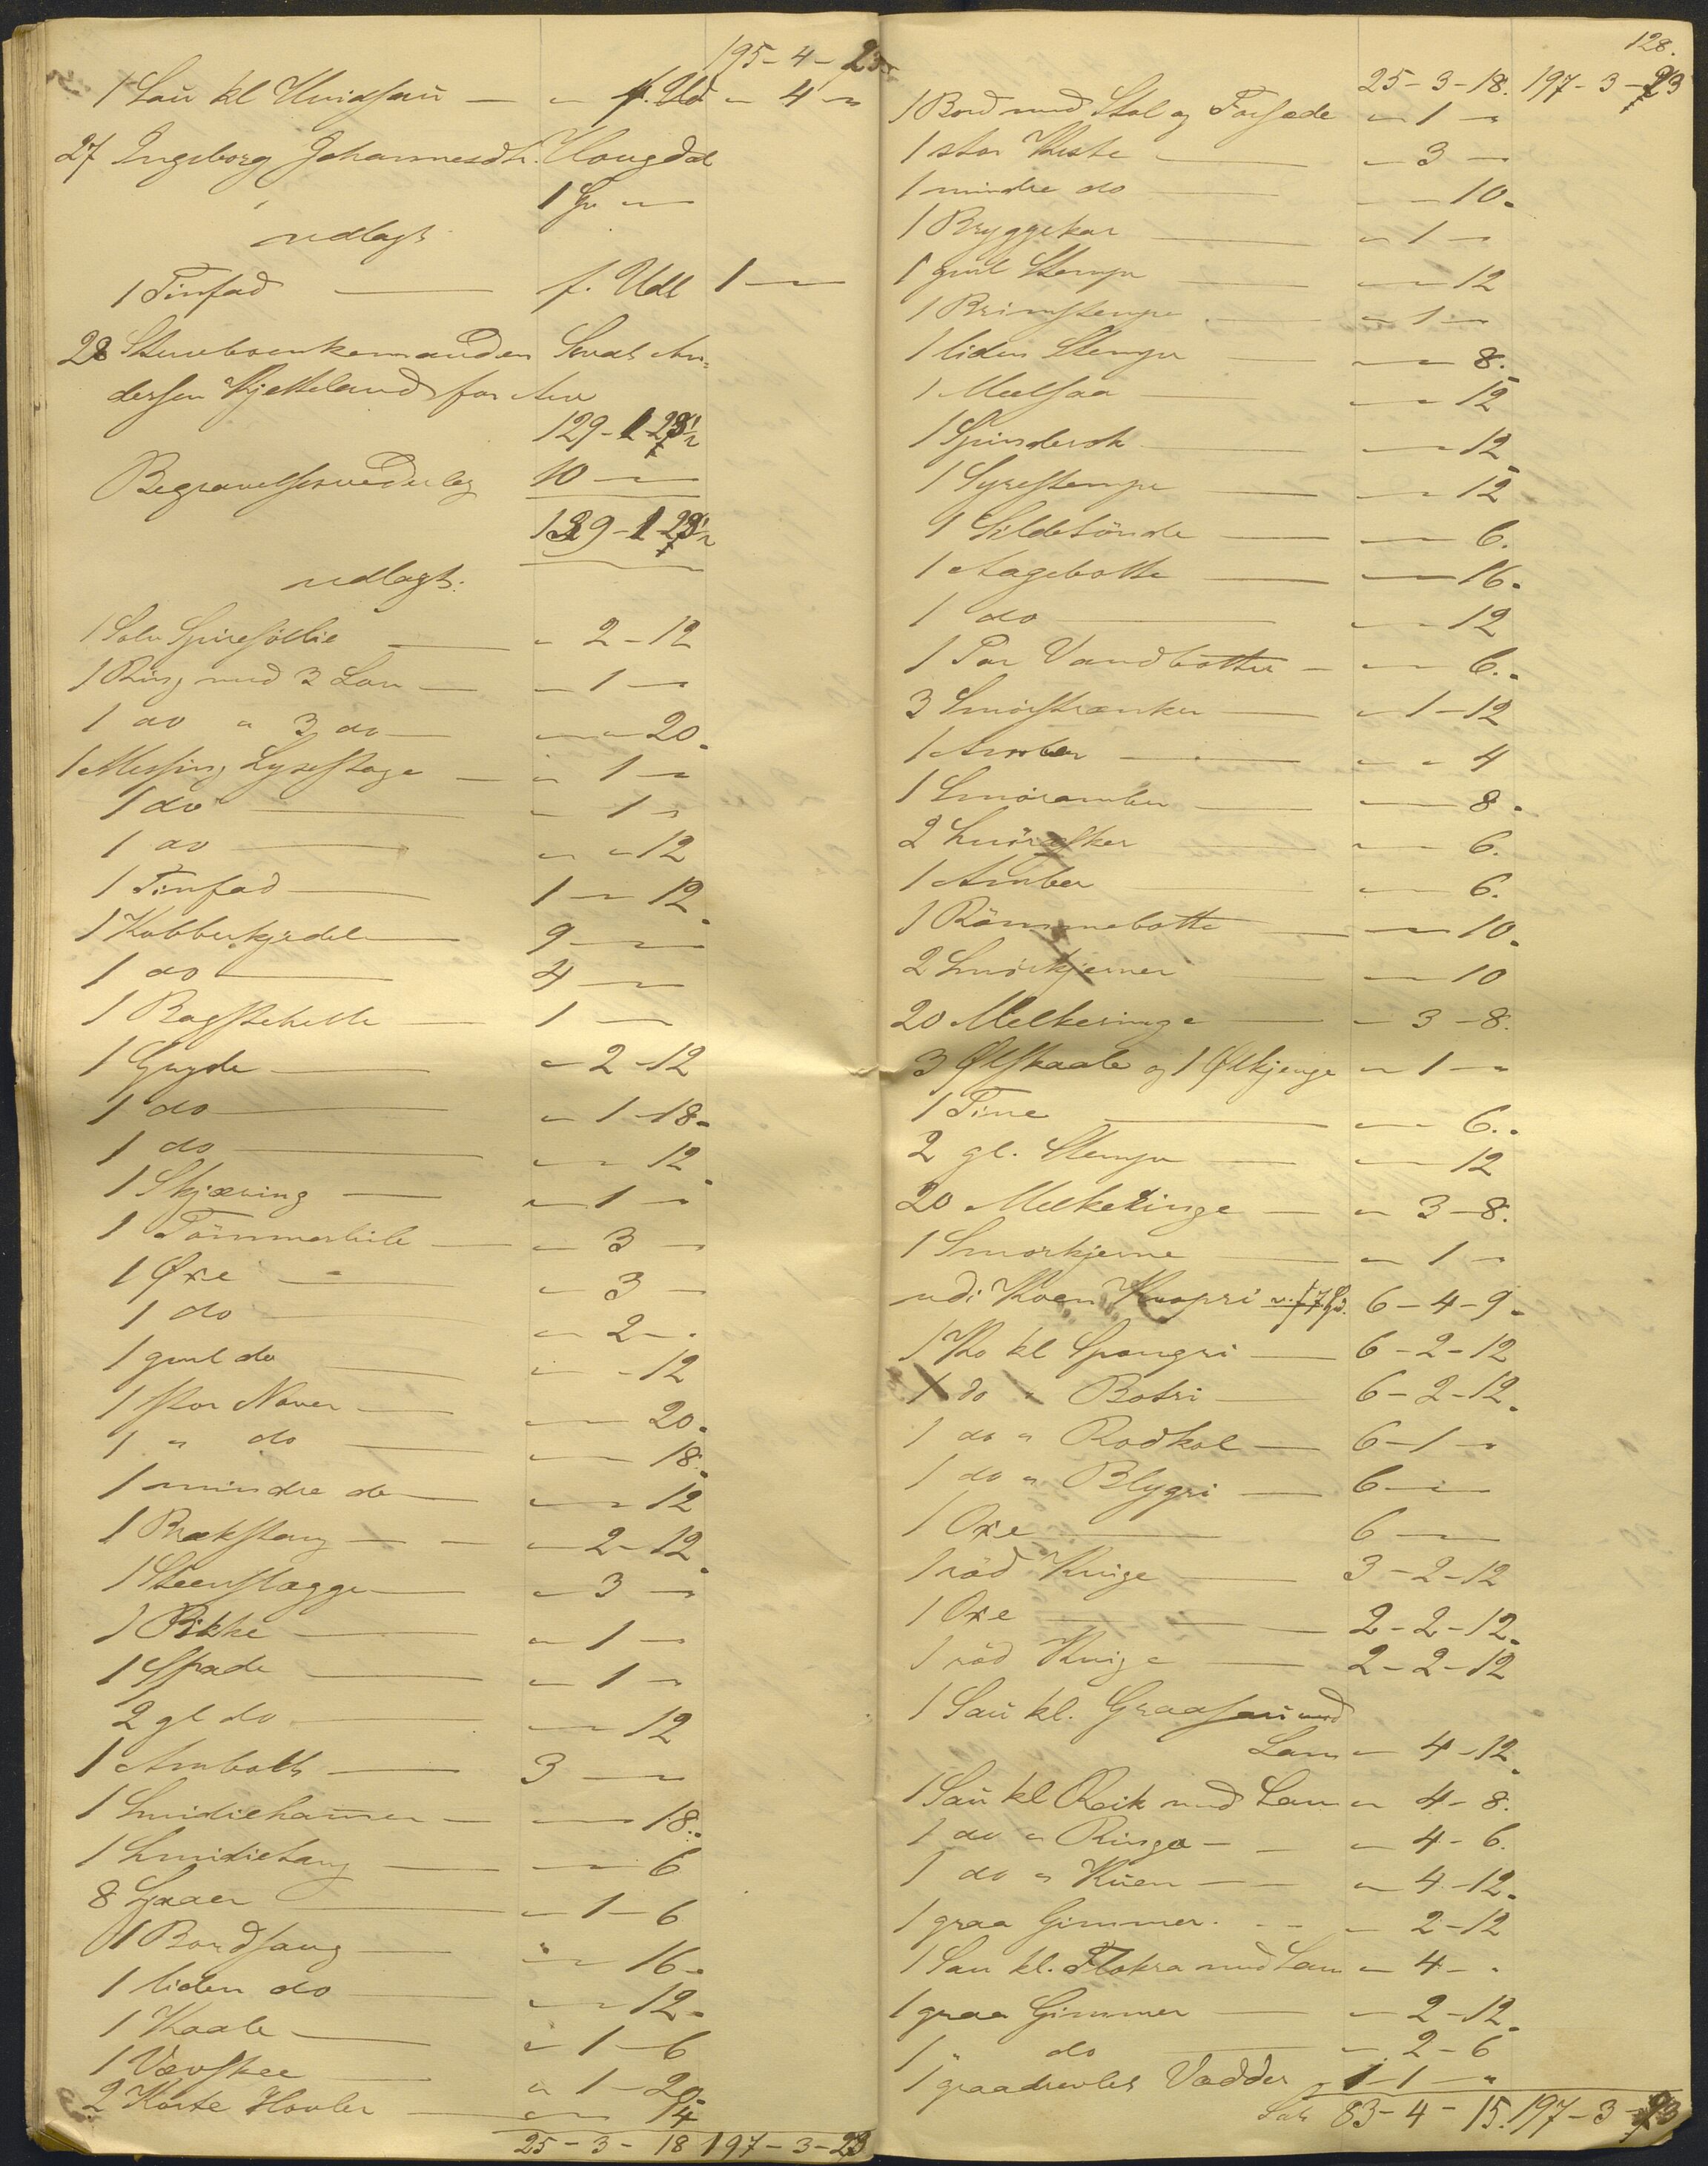 195 - 4 - 23
1 Sau kl Hvidsau — " f. Udl " 4 "
27 Ingeborg Johannesdtr. Hougdal
1 Sp. "
udlagt
1 Tinfad — f. Udl 1 — "
28 Stueboenkemanden Sevat An-
dersen Kjetteland for Arv
129 - 1 - 23 1/2
Begravelsesvederlag 10 — "
139 - 1 - 23 1/2
udlagt:
1 Solv Spiresöllie — " 2 - 12
1 Ring med 3 Lov — " 1 — "
1 do " 3 do — " " 20.
1 Messing Lysestage — " 1 — "
1 do — " 1 "
1 do — " " 12
1 Tinfad — 1 — " 12.
1 Kobberkjedel — 9 — "
1 do — 4 — "
1 Bagstehelle — 1 — "
1 Gryde — " 2 - 12
1 do — " 1 - 18.
1 do — " " 12
1 Skjæring — " 1 — "
1 Tömmerbile — " 3 — "
1 Øxe — " 3 — "
1 do — " 2 - "
1 gml do — " - 12
1 stor Naver — " 20.
1 " do — " 18.
1 mindre do — " " 12
1 Brækstang — " 2 - 12
1 Steenslægge — " 3 — "
1 Pikke — " 1 — "
1 Spade — " 1 — "
2 gl do — " 12
1 Ambolt — 3 — "
1 Smidiehamer — " 18.
1 Smidietang — " 6
8 Ljaaer — " 1 - 6
1 Bordsaug — " 16.
1 liden do — " 12.
1 Kaabe — " 1 - 6
1 Vævskee — " 1 - 20
2 Korte Hovler — " 14
25 - 3 - 18 197 - 3 - 23
128.
25 - 3 - 18. 197 - 3 - 23
1 Bord med Stol og Forsæde " 1 — "
1 stor Kiste — " 3 — "
1 mindre do — " - 10.
1 Bryggekar — " 1 — "
1 gml Stempe — " 12
1 Brimstempe — " 1 — "
1 liden Stempe — " 8.
1 Meelsaa — " 12
1 Spinderok — " 12
1 Syrestempe — " 12
1 Sildetönde — " 6.
1 Aagebotte — " 16.
1 do — " 12
1 Par Vandbötter — " 6.
3 Smörstrænker — " 1 - 12
1 Amber — " " 4
1 Smöramber — " 8.
2 Smörasker " 6.
1 Amber — " 6.
1 Römmebotte — " 10.
2 Smörkjerner — " 10
20 Melkeringe — " 3 - 8.
3 Ølskaale og 1 Ølkjenge " 1 — "
1 Tine — " 6.
2 gl. Stemper — " 12
20 Melkeringe — " 3 - 8.
1 Smörkjerne — " 1 — "
udi Koen Knopri 6 - 4 - 9.
1 Ko kl Spongri — 6 - 2 - 12
1 do " Botri — 6 - 2 - 12.
1 do " Rodkol — 6 - 1 — "
1 do " Blygri — 6 — "
1 Oxe — 6 — "
1 röd Kvige — 3 - 2 - 12
1 Oxe — 2 - 2 - 12.
1 röd Kvige — 2 - 2 - 12
1 Sau kl. Graasau med
Lam " 4 - 12.
1 Sau kl Reik med Lam " 4 - 8.
1 do " Ringa — " 4 - 6.
1 do " Kuen — " 4 - 12.
1 graa Gimmer. — " 2 - 12
1 Sau kl. Flokra med Lam " 4 - "
1 graa Gimmer — " 2 - 12.
1 " do — " 2 - 6
1 graadrevlet Vædder " 1 - 1 — "
Lats 83 - 4 - 15. 197 - 3 - 23